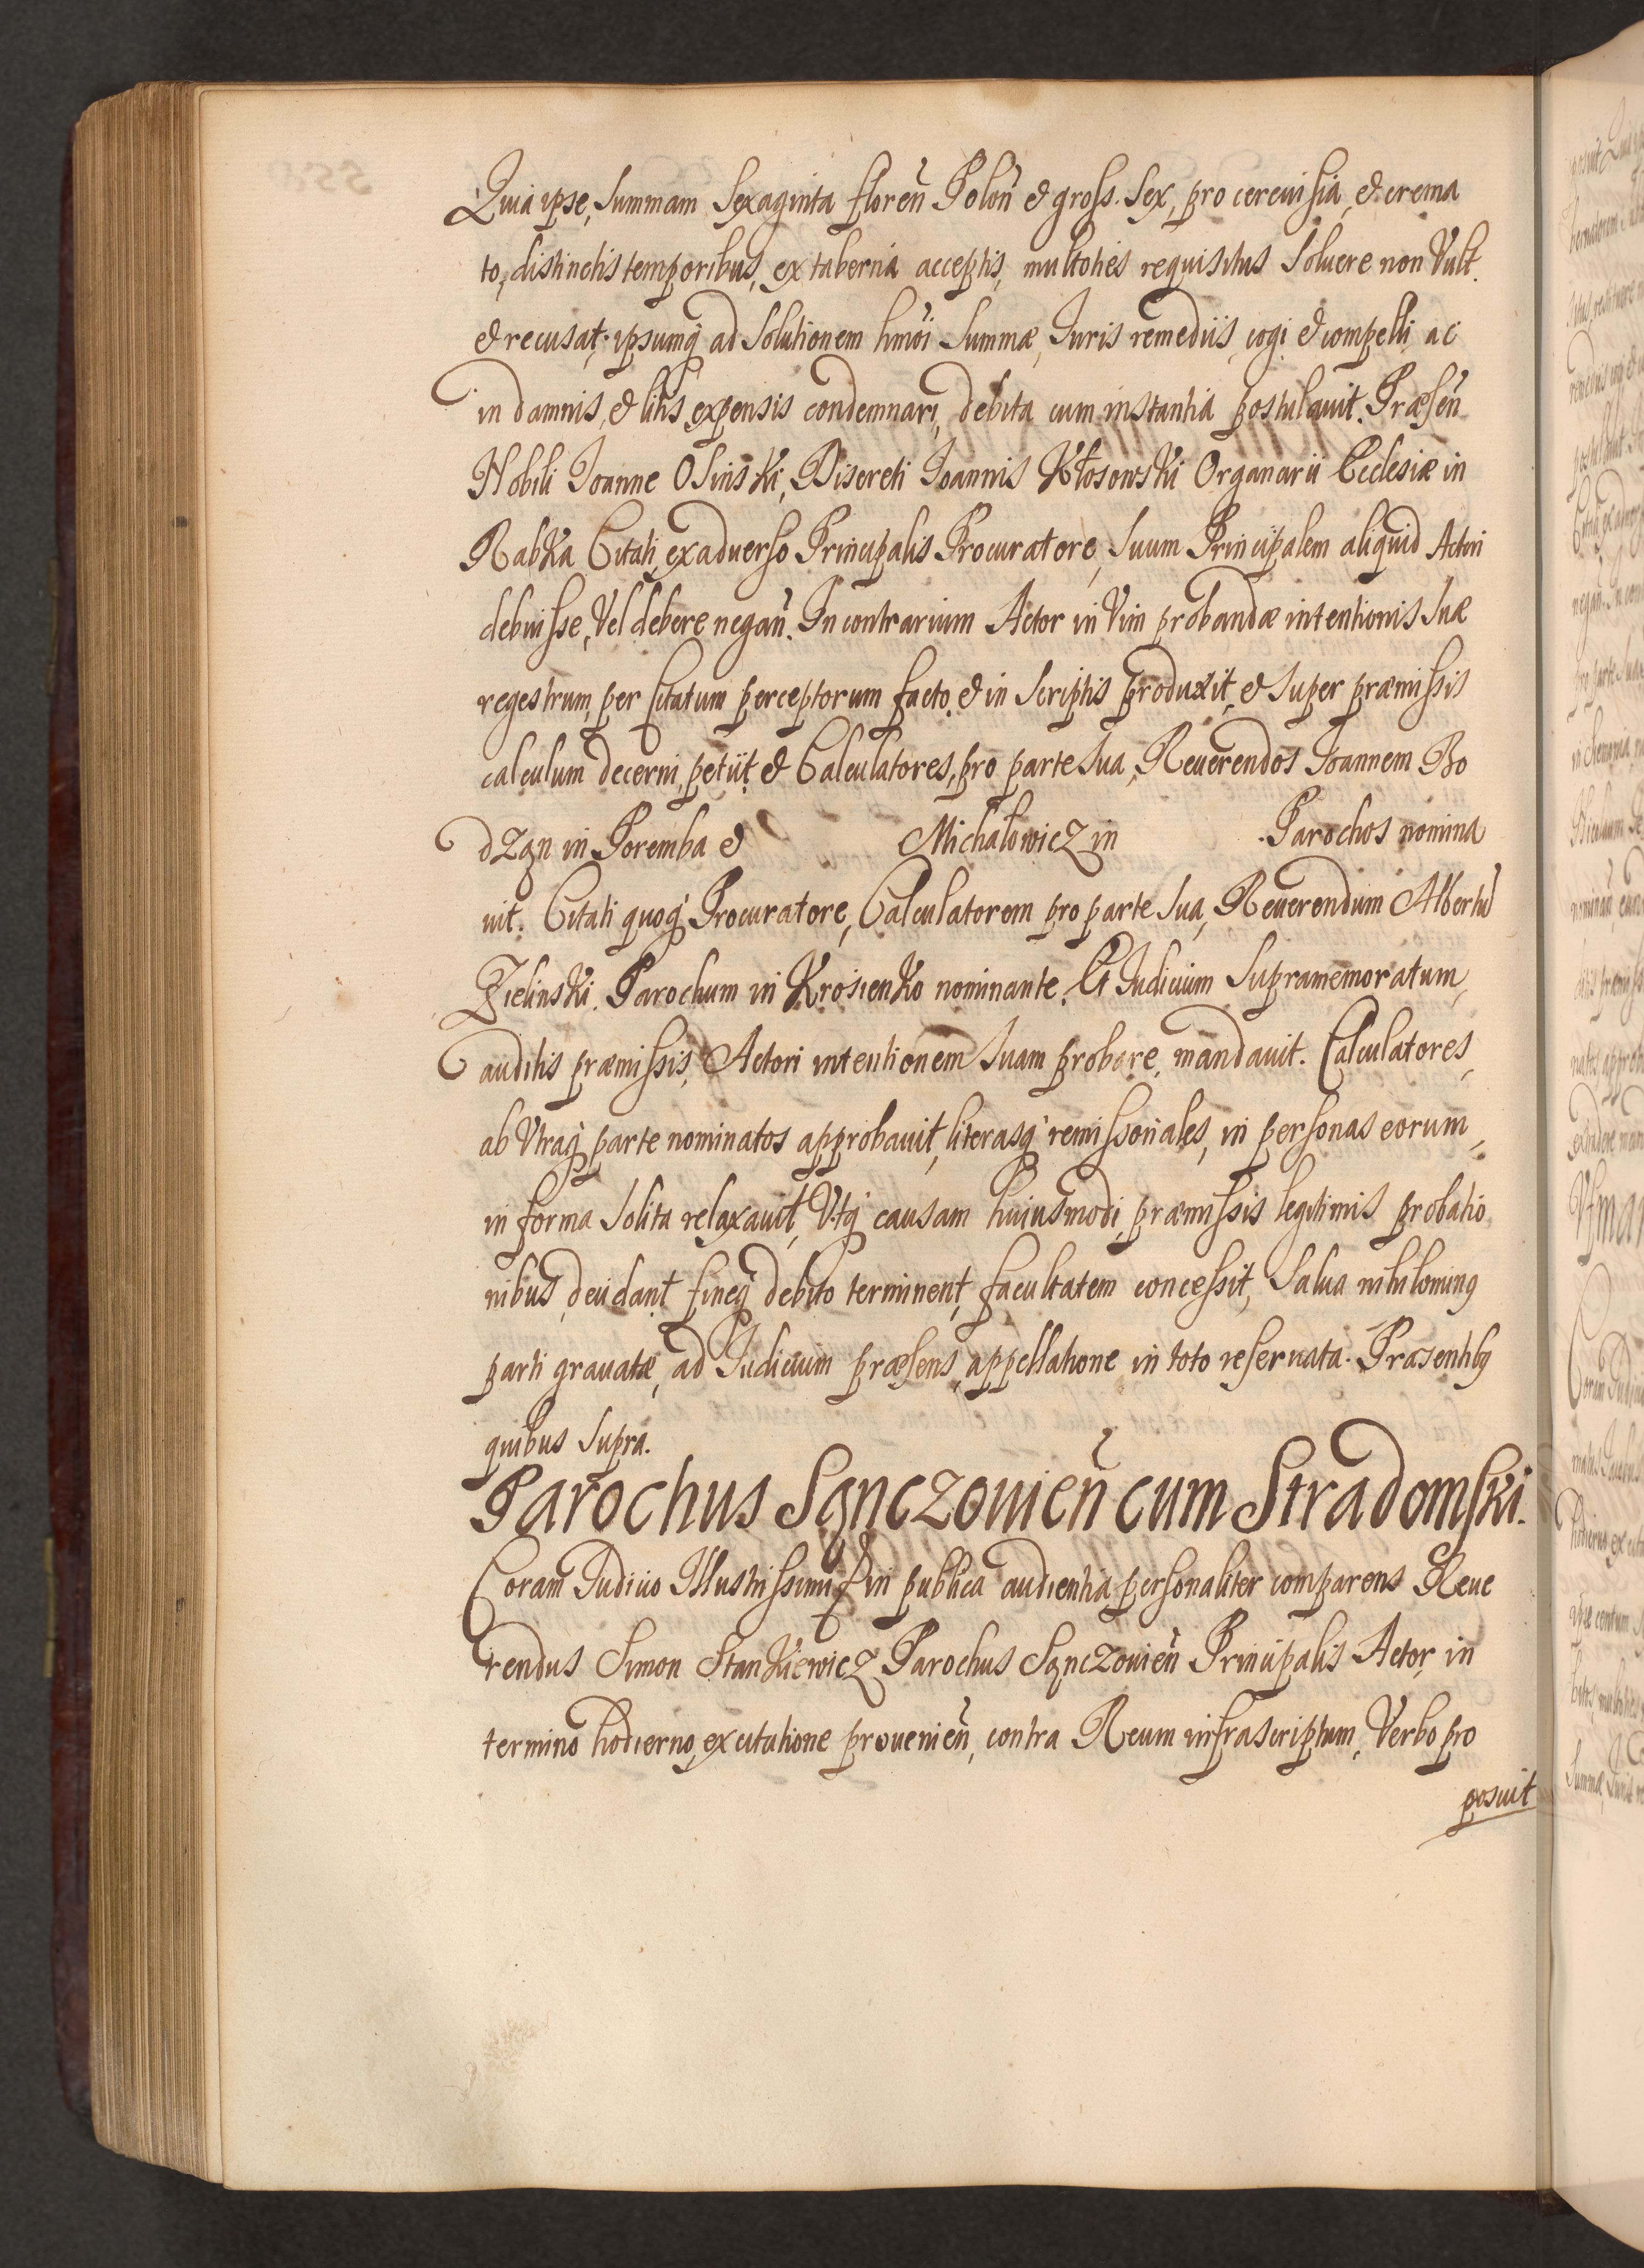 Quia ipse, summam sexaginta floreñ Poloñ & gross. sex, pro cereuisia, & crema
to, distinctis temporibus, ex taberna acceptis, multoties requisitus soluere non Vult
& recusat. ipsumq̃ ad solutionem hmõi summæ, Iuris remediis, cogi & compelli, ac
in damnis, & litis expensis condemnari, debita cum instantia postulauit. Præseñ
Nobili Ioanne Osinski, Discreti Ioannis Kłosowski Organarii Ecclesiæ in
Rabka Citati, ex aduerso Principalis Procuratore, suum Principalem aliquid Actori
debuisse, Vel debere negañ. In contrarium Actor in Vim probandæ intentionis suæ
regestrum, per Citatum perceptorum facto, & in scriptis produxit, & super præmissis
calculum decerni, petiit, & Calculatores, pro parte sua, Reuerendos Ioannem Bo
dząn in Poremba & Michałowicz in Parochos nomina
uit. Citati quoq̃ Procuratore, Calculatorem pro parte sua, Reuerendum Albertũ
Zielinski. Parochum in Krosienko nominante. Et Iudicium supramemoratum,
auditis præmissis, Actori intentionem suam probare, mandauit. Calculatores,
ab Vtraq̃ parte nominatos approbauit, literasq̃ remissoriales, in personas eorum,
in forma solita relaxauit, Vtq̃ causam huiusmodi, præmissis legitimis probatio
nibus, decidant, fineq̃ debito terminent, facultatem concessit, Salua nihilominꝯ
parti grauatæ, ad Iudicium præsens, appellatione in toto reseruata. Præsentibꝯ
quibus supra.
Parochus Sąnczouieñ cum Stradomski.
Coram Iudicio Illustrissimi & in publica audientia, personaliter comparens Reue
rendus Simon Stankiewicz Parochus Sąnczouieñ Principalis Actor, in
termino hodierno, ex citatione prouenieñ, contra Reum infrascriptum, Verbo pro
posuit